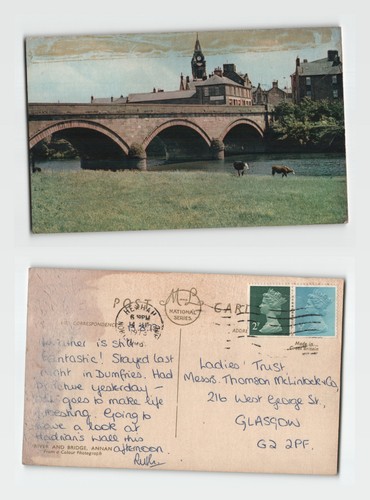 POST CARD
M.B
NATIONAL SERIES
CORRESPONDENCE
HEXHAM
6 - PM
1973
2P
Weather is still
fantastic! Stayed last
night in Dumfries. Had
puncture yesterday –
goes to make life
interesting. Going to
have a look at
Hadrian's Wall this
afternoon.
Ruth
RIVER AND BRIDGE, ANNAN
From a Colour Photograph
Ladies' Trust,
Messrs. Thomson McLintock & Co,
216 West George St,
GLASGOW
G2 2PF.